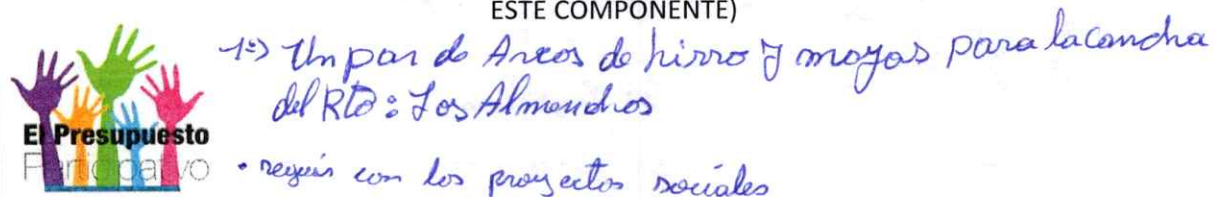 ESTE COMPONENTE)
1º) Un par de Arcos de hirro y moyas para la cancha
del Rto: Los Almendros
El Presupuesto
Participativo
• reguir con los proyectos sociales